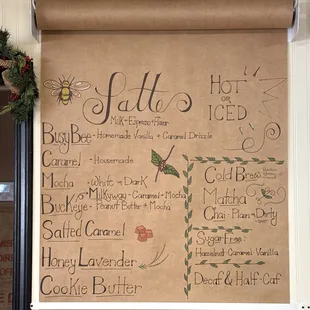 Latte
Milk + Espresso + Flavor
HOT
or
ICED
Busy Bee - Homemade Vanilla + Caramel Drizzle
Caramel - Housemade
Mocha - White or Dark
Milkyway - Caramel + Mocha
Buckeye - Peanut Butter + Mocha
Salted Caramel
Honey Lavender
Cookie Butter
Cold Brew
Matcha
Chai - Plain or Dirty
Sugar Free:
Hazelnut · Caramel · Vanilla
Decaf & Half-Caf